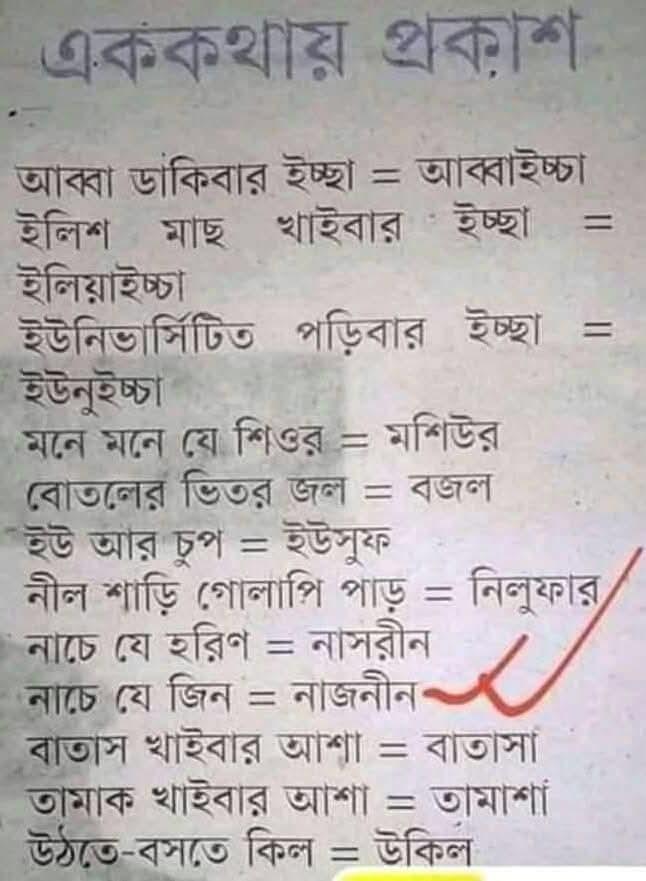 এককথায় প্রকাশ
আব্বা ডাকিবার ইচ্ছা = আব্বাইচ্চা
ইলিশ মাছ খাইবার ইচ্ছা =
ইলিয়াইচ্চা
ইউনিভার্সিটিত পড়িবার ইচ্ছা =
ইউনুইচ্চা
মনে মনে যে শিওর = মশিউর
বোতলের ভিতর জল = বজল
ইউ আর চুপ = ইউসুফ
নীল শাড়ি গোলাপি পাড় = নিলুফার
নাচে যে হরিণ = নাসরীন
নাচে যে জিন = নাজনীন
বাতাস খাইবার আশা = বাতাসা
তামাক খাইবার আশা = তামাশা
উঠতে-বসতে কিল = উকিল